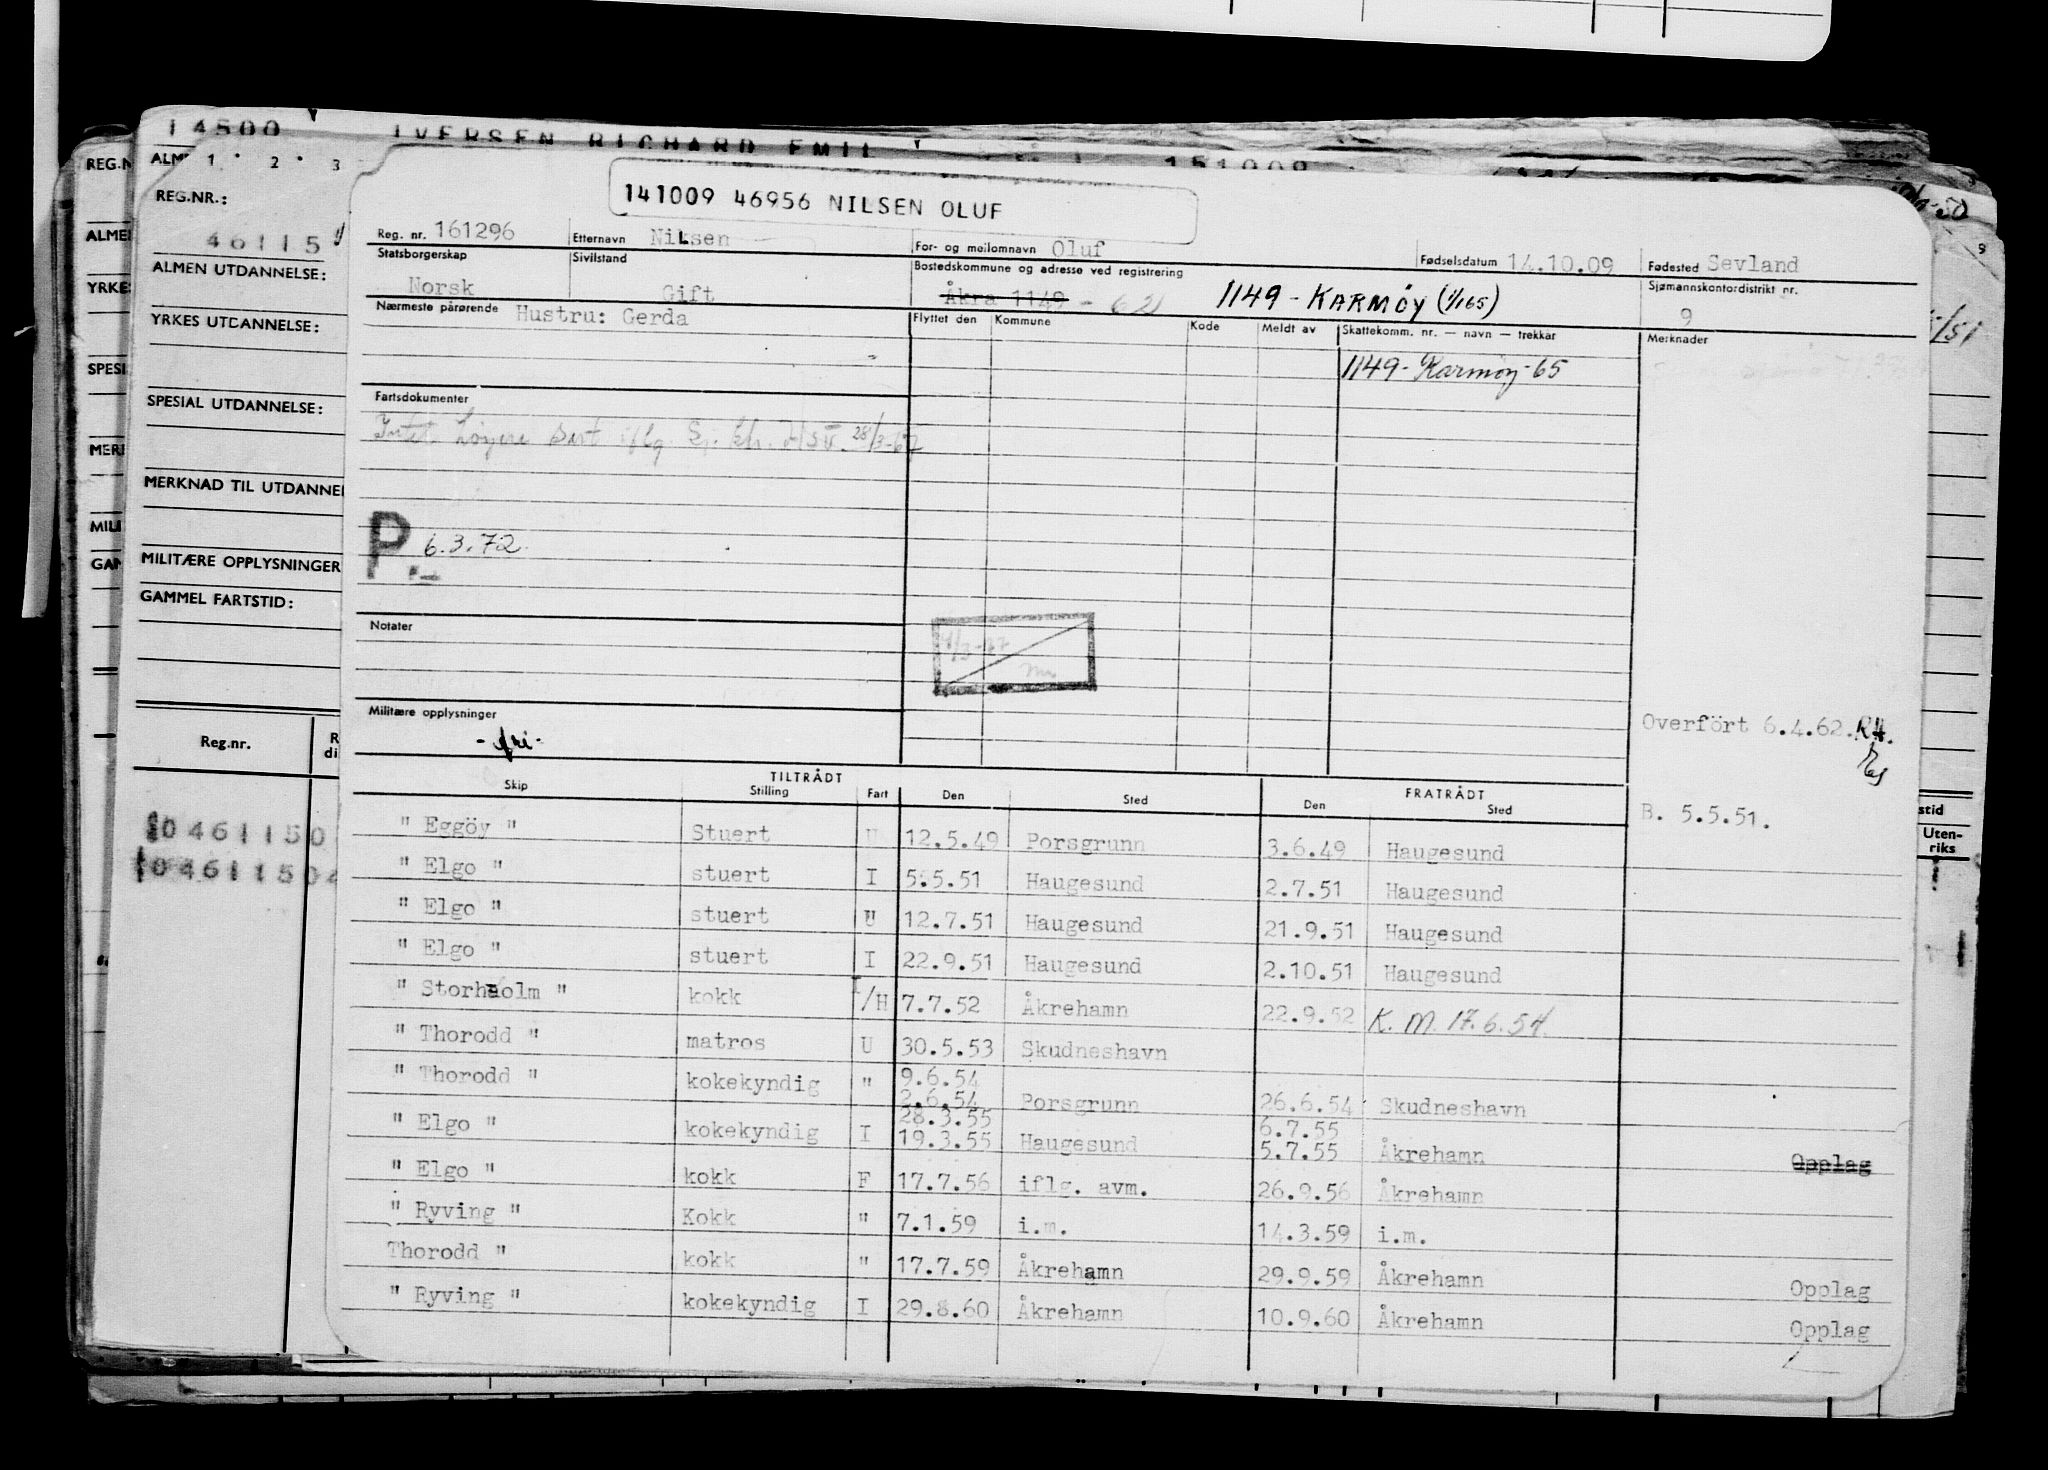 14500 IVERSEN RICHARD EMIL 151009
REG.N
ALM
1 2 3
REG.NR.:
46115
ALME
ALMEN UTDANNELSE:
YRKE
YRKES UTDANNELSE:
SPESI
SPESIAL UTDANNELSE:
MER
MERKNAD TIL UTDANNE
MILI
MILITÆRE OPPLYSNINGER
GAM
GAMMEL FARTSTID:
Reg.nr.
R
di
0461150
04611502
141009 46956 NILSEN OLUF
Reg. nr. 161296 Etternavn Nilsen For- og mellomnavn Oluf Fødselsdatum 14.10.09 Fødested Sevland
Statsborgerskap Norsk Sivilstand Gift Bostedskommune og adresse ved registrering Åkra 1149 - 62 1149 - KARMØY (1/165) Sjømannskontordistrikt nr. 9
Nærmeste pårørende Hustru: Gerda Flyttet den Kommune Kode Meldt av Skattekomm. nr. — navn — trekkår Merknader
1149 - Karmøy - 65
Fartsdokumenter
28/3-62
P. 6.3.72
Notater
Militære opplysninger
- fri -
Overfört 6.4.62. RH.
B. 5.5.51.
TILTRÅDT FRATRÅDT
Skip Stilling Fart Den Sted Den Sted
" Eggöy " Stuert U 12.5.49 Porsgrunn 3.6.49 Haugesund
" Elgo " stuert I 5.5.51 Haugesund 2.7.51 Haugesund
" Elgo " stuert U 12.7.51 Haugesund 21.9.51 Haugesund
" Elgo " stuert I 22.9.51 Haugesund 2.10.51 Haugesund
" Storholm " kokk I/H 7.7.52 Åkrehamn 22.9.52 K. M. 17.6.54.
" Thorodd " matros U 30.5.53 Skudneshavn
" Thorodd " kokekyndig " 9.6.54
2.6.54 Porsgrunn 26.6.54 Skudneshavn
" Elgo " kokekyndig I 28.3.55 6.7.55
19.3.55 Haugesund 5.7.55 Åkrehamn Opplag
" Elgo " kokk F 17.7.56 iflg. avm. 26.9.56 Åkrehamn
" Ryving " Kokk " 7.1.59 i.m. 14.3.59 i.m.
Thorodd " kokk " 17.7.59 Åkrehamn 29.9.59 Åkrehamn Opplag
" Ryving " kokekyndig I 29.8.60 Åkrehamn 10.9.60 Åkrehamn Opplag
stid
Uten-
riks